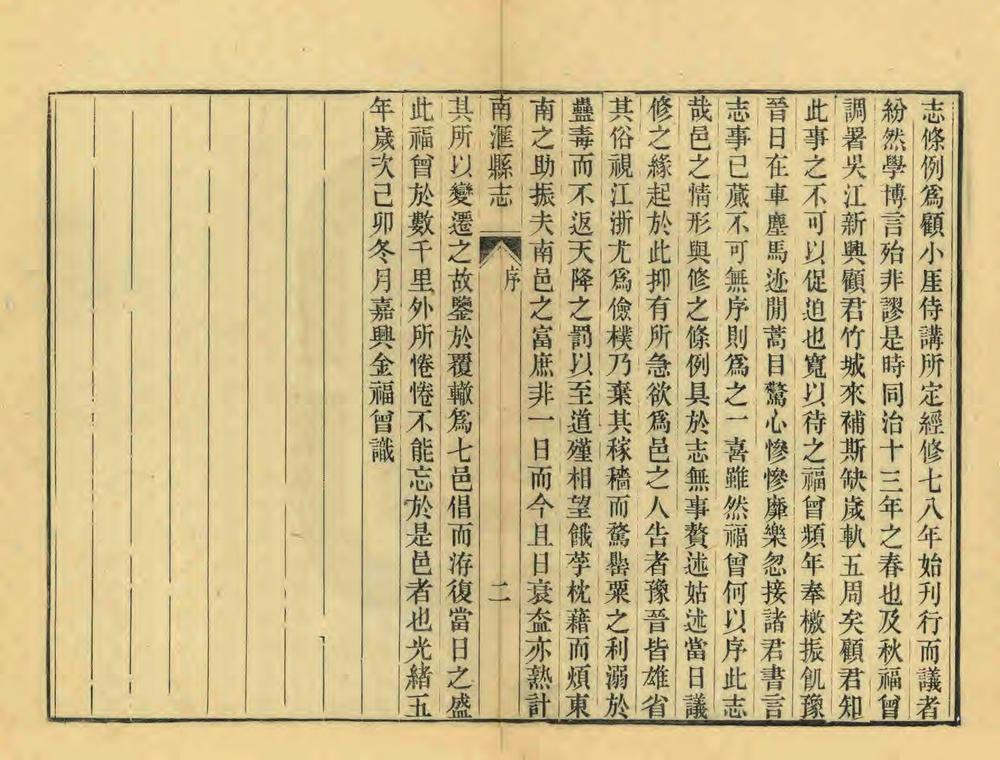 志條例爲顧小厓侍講所定經修七八年始刊行而議者
紛然學博言殆非謬是時同治十三年之春也及秋福曾
調署吳江新興顧君竹城來補斯缺歲執五周矣顧君知
此事之不可以促迫也寬以待之福曾頻年奉檄振飢豫
晉日在車塵馬迹閒蒿目驚心慘慘靡樂忽接諸君書言
志事已蕆不可無序則爲之一喜雖然福曾何以序此志
哉邑之情形與修之條例具於志無事贅述姑述當日議
修之緣起於此抑有所急欲爲邑之人告者豫晉皆雄省
其俗視江浙尤爲儉樸乃棄其稼穡而騖罌粟之利溺於
蠱毒而不返天降之罰以至道殣相望餓莩枕藉而煩東
南之助振夫南邑之富庶非一日而今且日衰盍亦熟計
南滙縣志
序
二
其所以變遷之故鑒於覆轍爲七邑倡而洊復當日之盛
此福曾於數千里外所惓惓不能忘於是邑者也光緒五
年歲次己卯冬月嘉興金福曾識